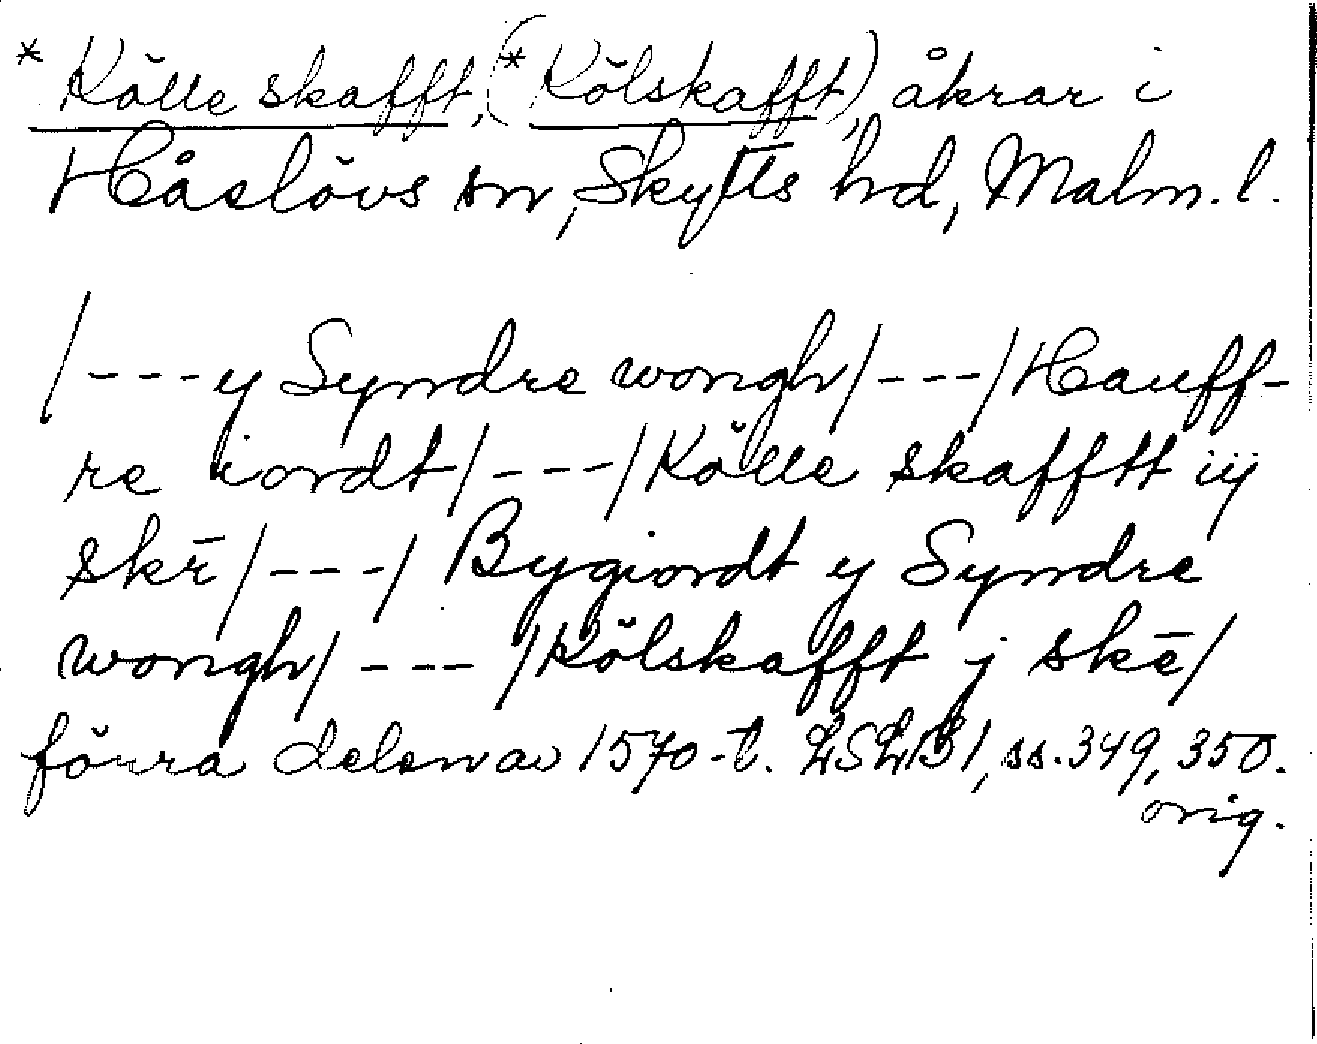 * Kölle skafft, (* Kölskafft), åkrar i
Håslövs sn, Skytts hd, Malm. l.
/---y Syndre wongh/---/Hauff-
re iordt/---/Kölle skafftt iij
skē/---/ Bygiordt y Syndre
wongh/---/Kölskafft j skē/
förra delen av 1570-t. LSLB1, ss. 349, 350.
orig.